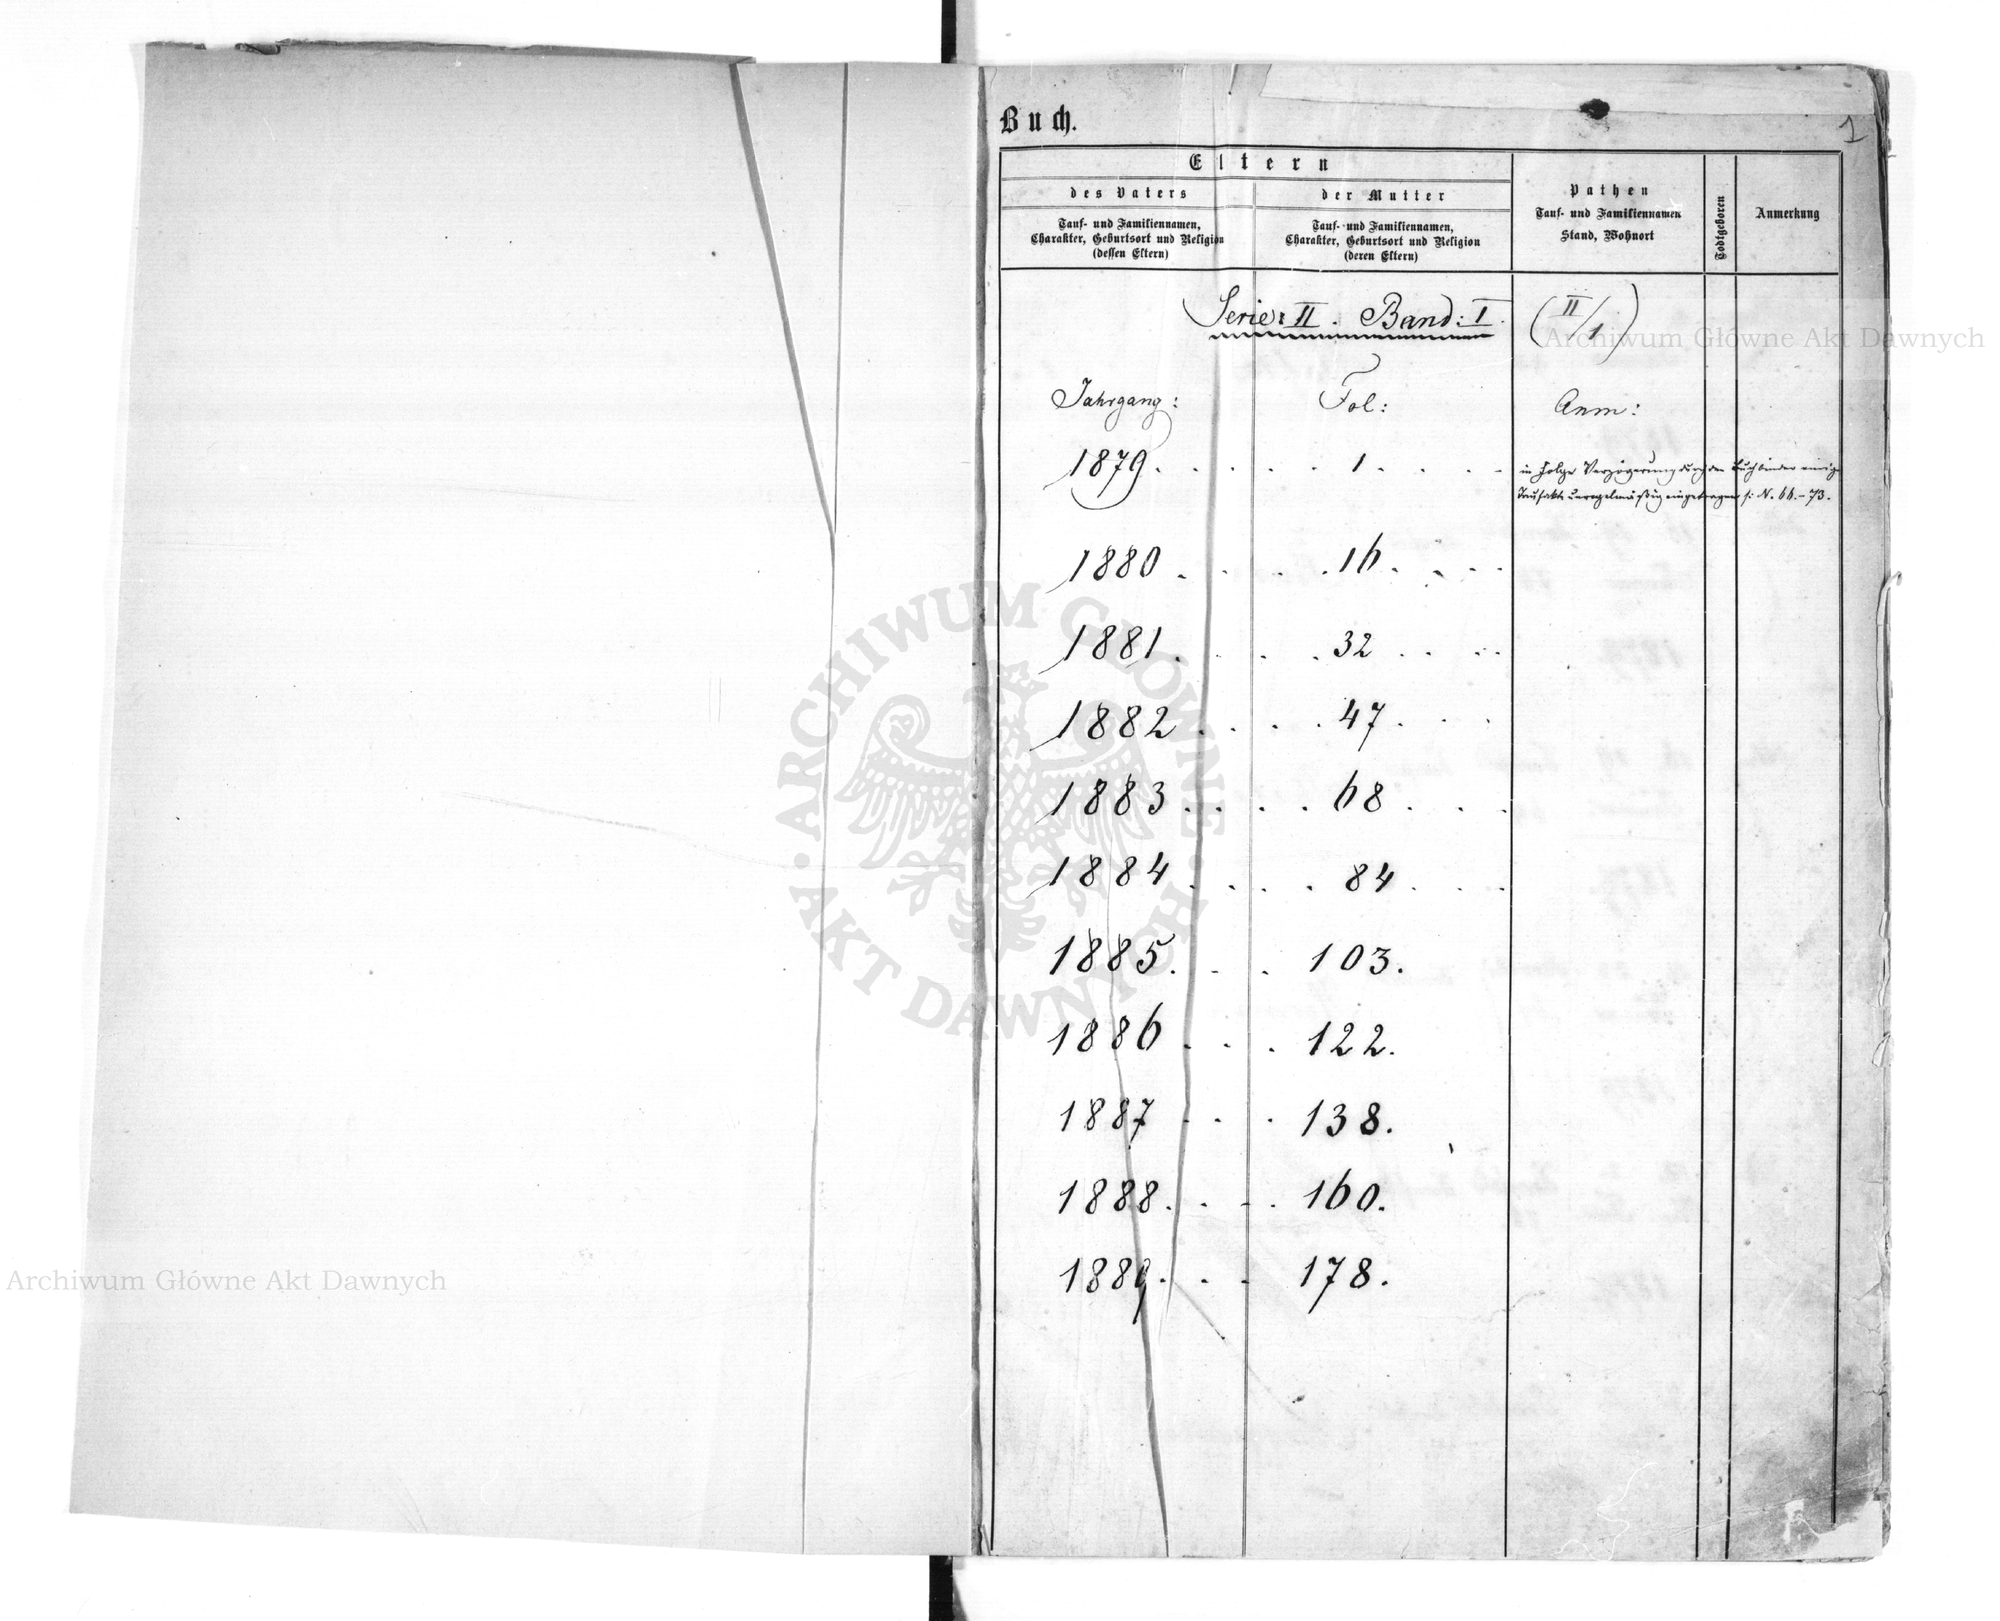 Buch.
1
Eltern
des Vaters
der Mutter
Tauf- und Familiennamen,
Charakter, Geburtsort und Religion
(dessen Eltern)
Tauf- und Familiennamen,
Charakter, Geburtsort und Religion
(deren Eltern)
Pathen
Tauf- und Familiennamen
Stand, Wohnort
Todtgeboren
Anmerkung
Serie: II. Band: I. (II/1)
Jahrgang: Fol: Anm:
1879 . . . . . 1 . . . . in Folge Verzögerung durch den Buchbinder einige
Taufakte unregelmäßig eingetragen s: N. 66.–73.
1880 . . . . . 16 . . . .
1881 . . . . 32 . . . .
1882 . . . . 47 . . .
1883 . . . . 68 . . .
1884 . . . . 84 . . .
1885 . . . 103.
1886 . . . 122.
1887 . . . 138.
1888 . . . 160.
1889 . . . 178.
Archiwum Główne Akt Dawnych
ARCHIWUM GŁÓWNE · AKT DAWNYCH ·
Archiwum Główne Akt Dawnych